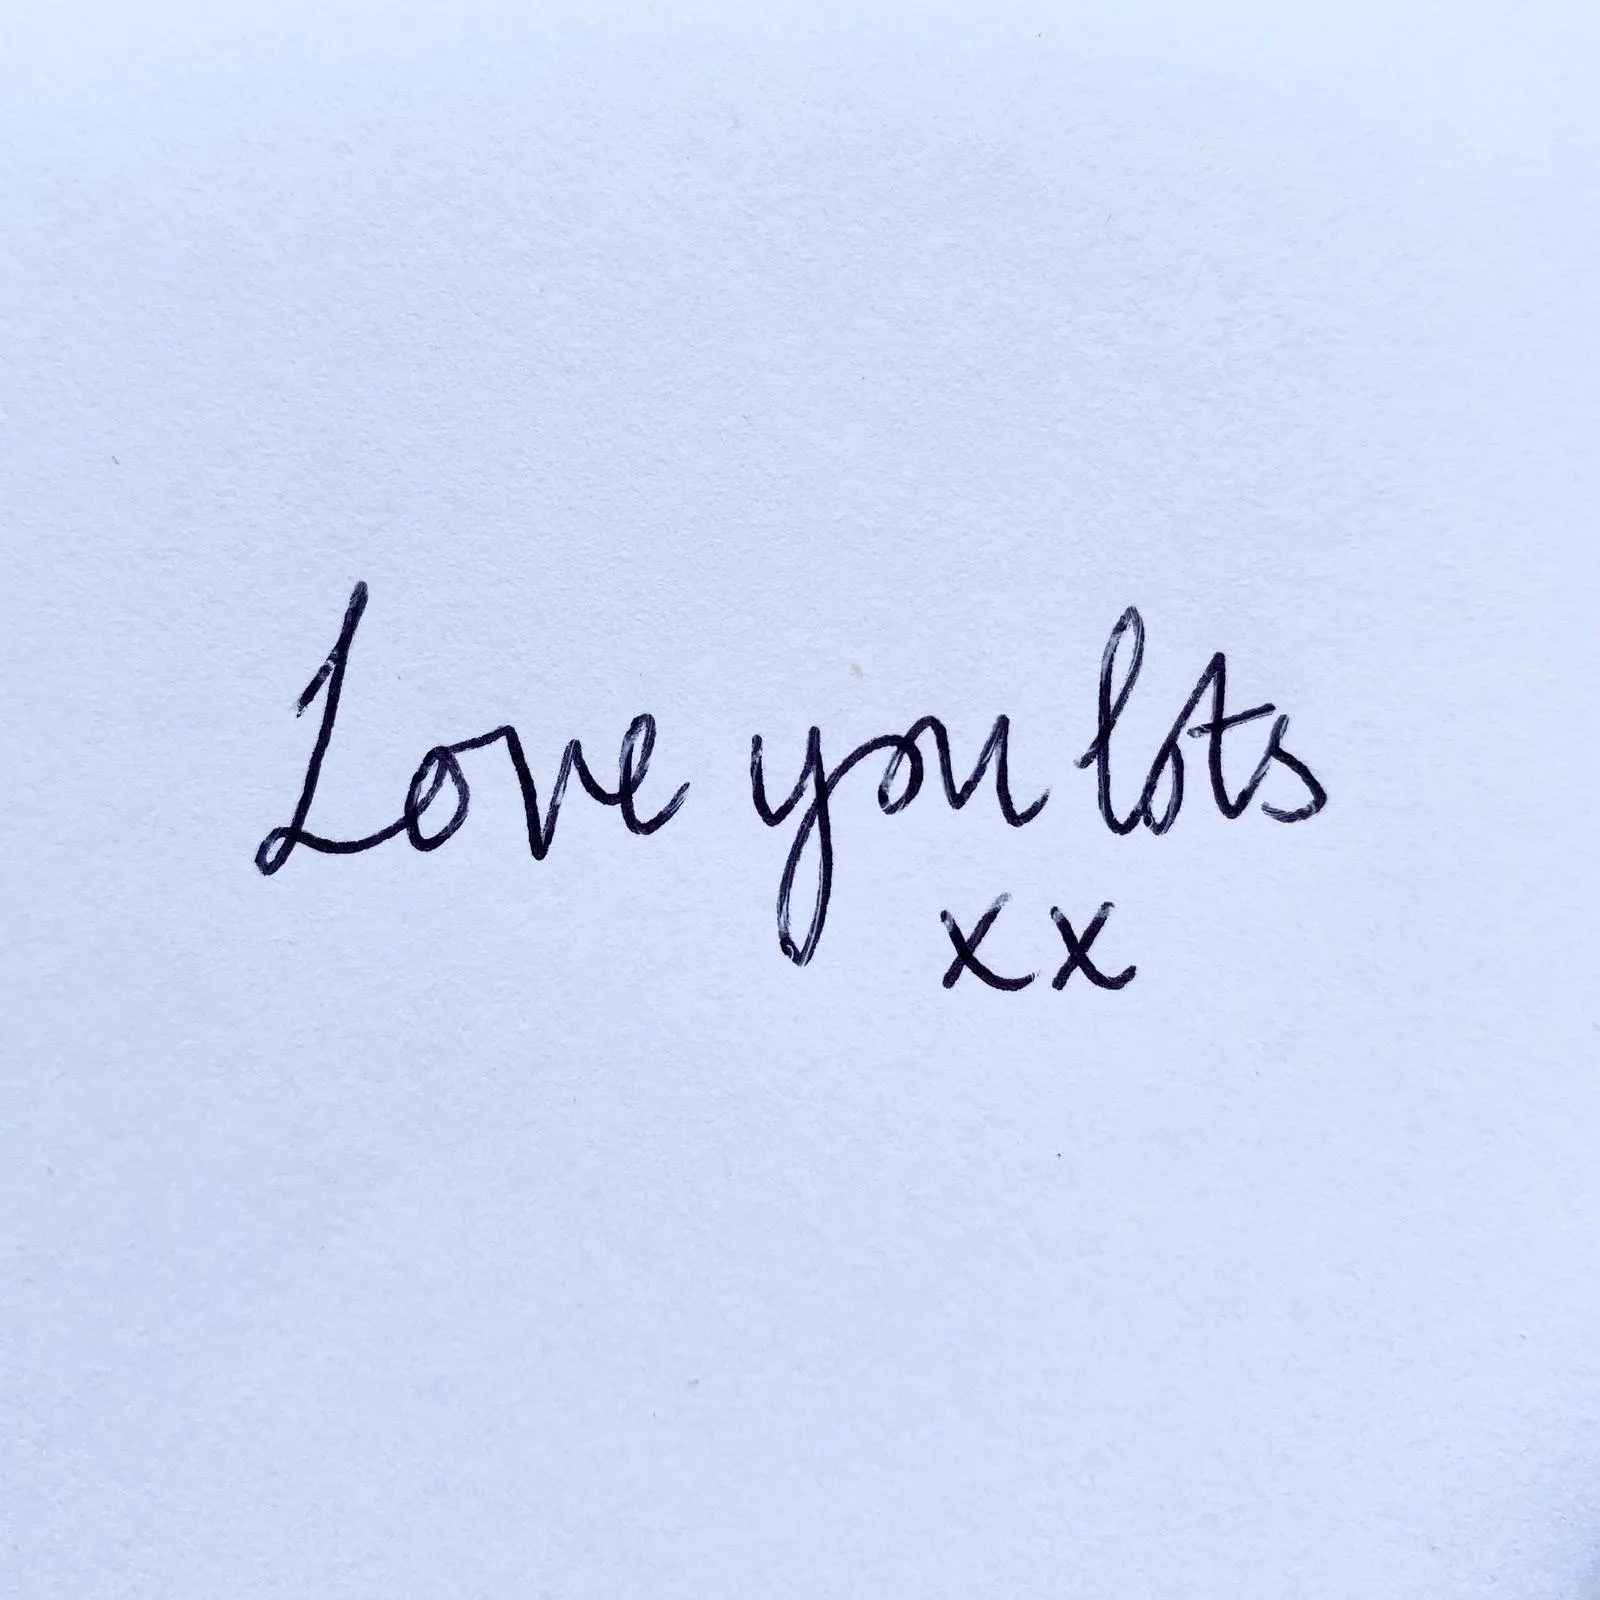 Love you lots
xx